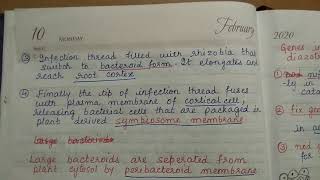 10
MONDAY
February
2020
③ Infection thread filled with rhizobia that
switch to bacteroid form. It elongates and
reach root cortex
④ Finally the tip of infection thread fuses
with plasma membrane of cortical cell,
releasing bacterial cells that are packaged in
plant derived symbiosome membrane
Large bacteroids
Large bacteroids are seperated from
plant cytosol by peribacteroid membrane
Genes in
diazot
① nod
② fix gen
in a
③ nod g
for